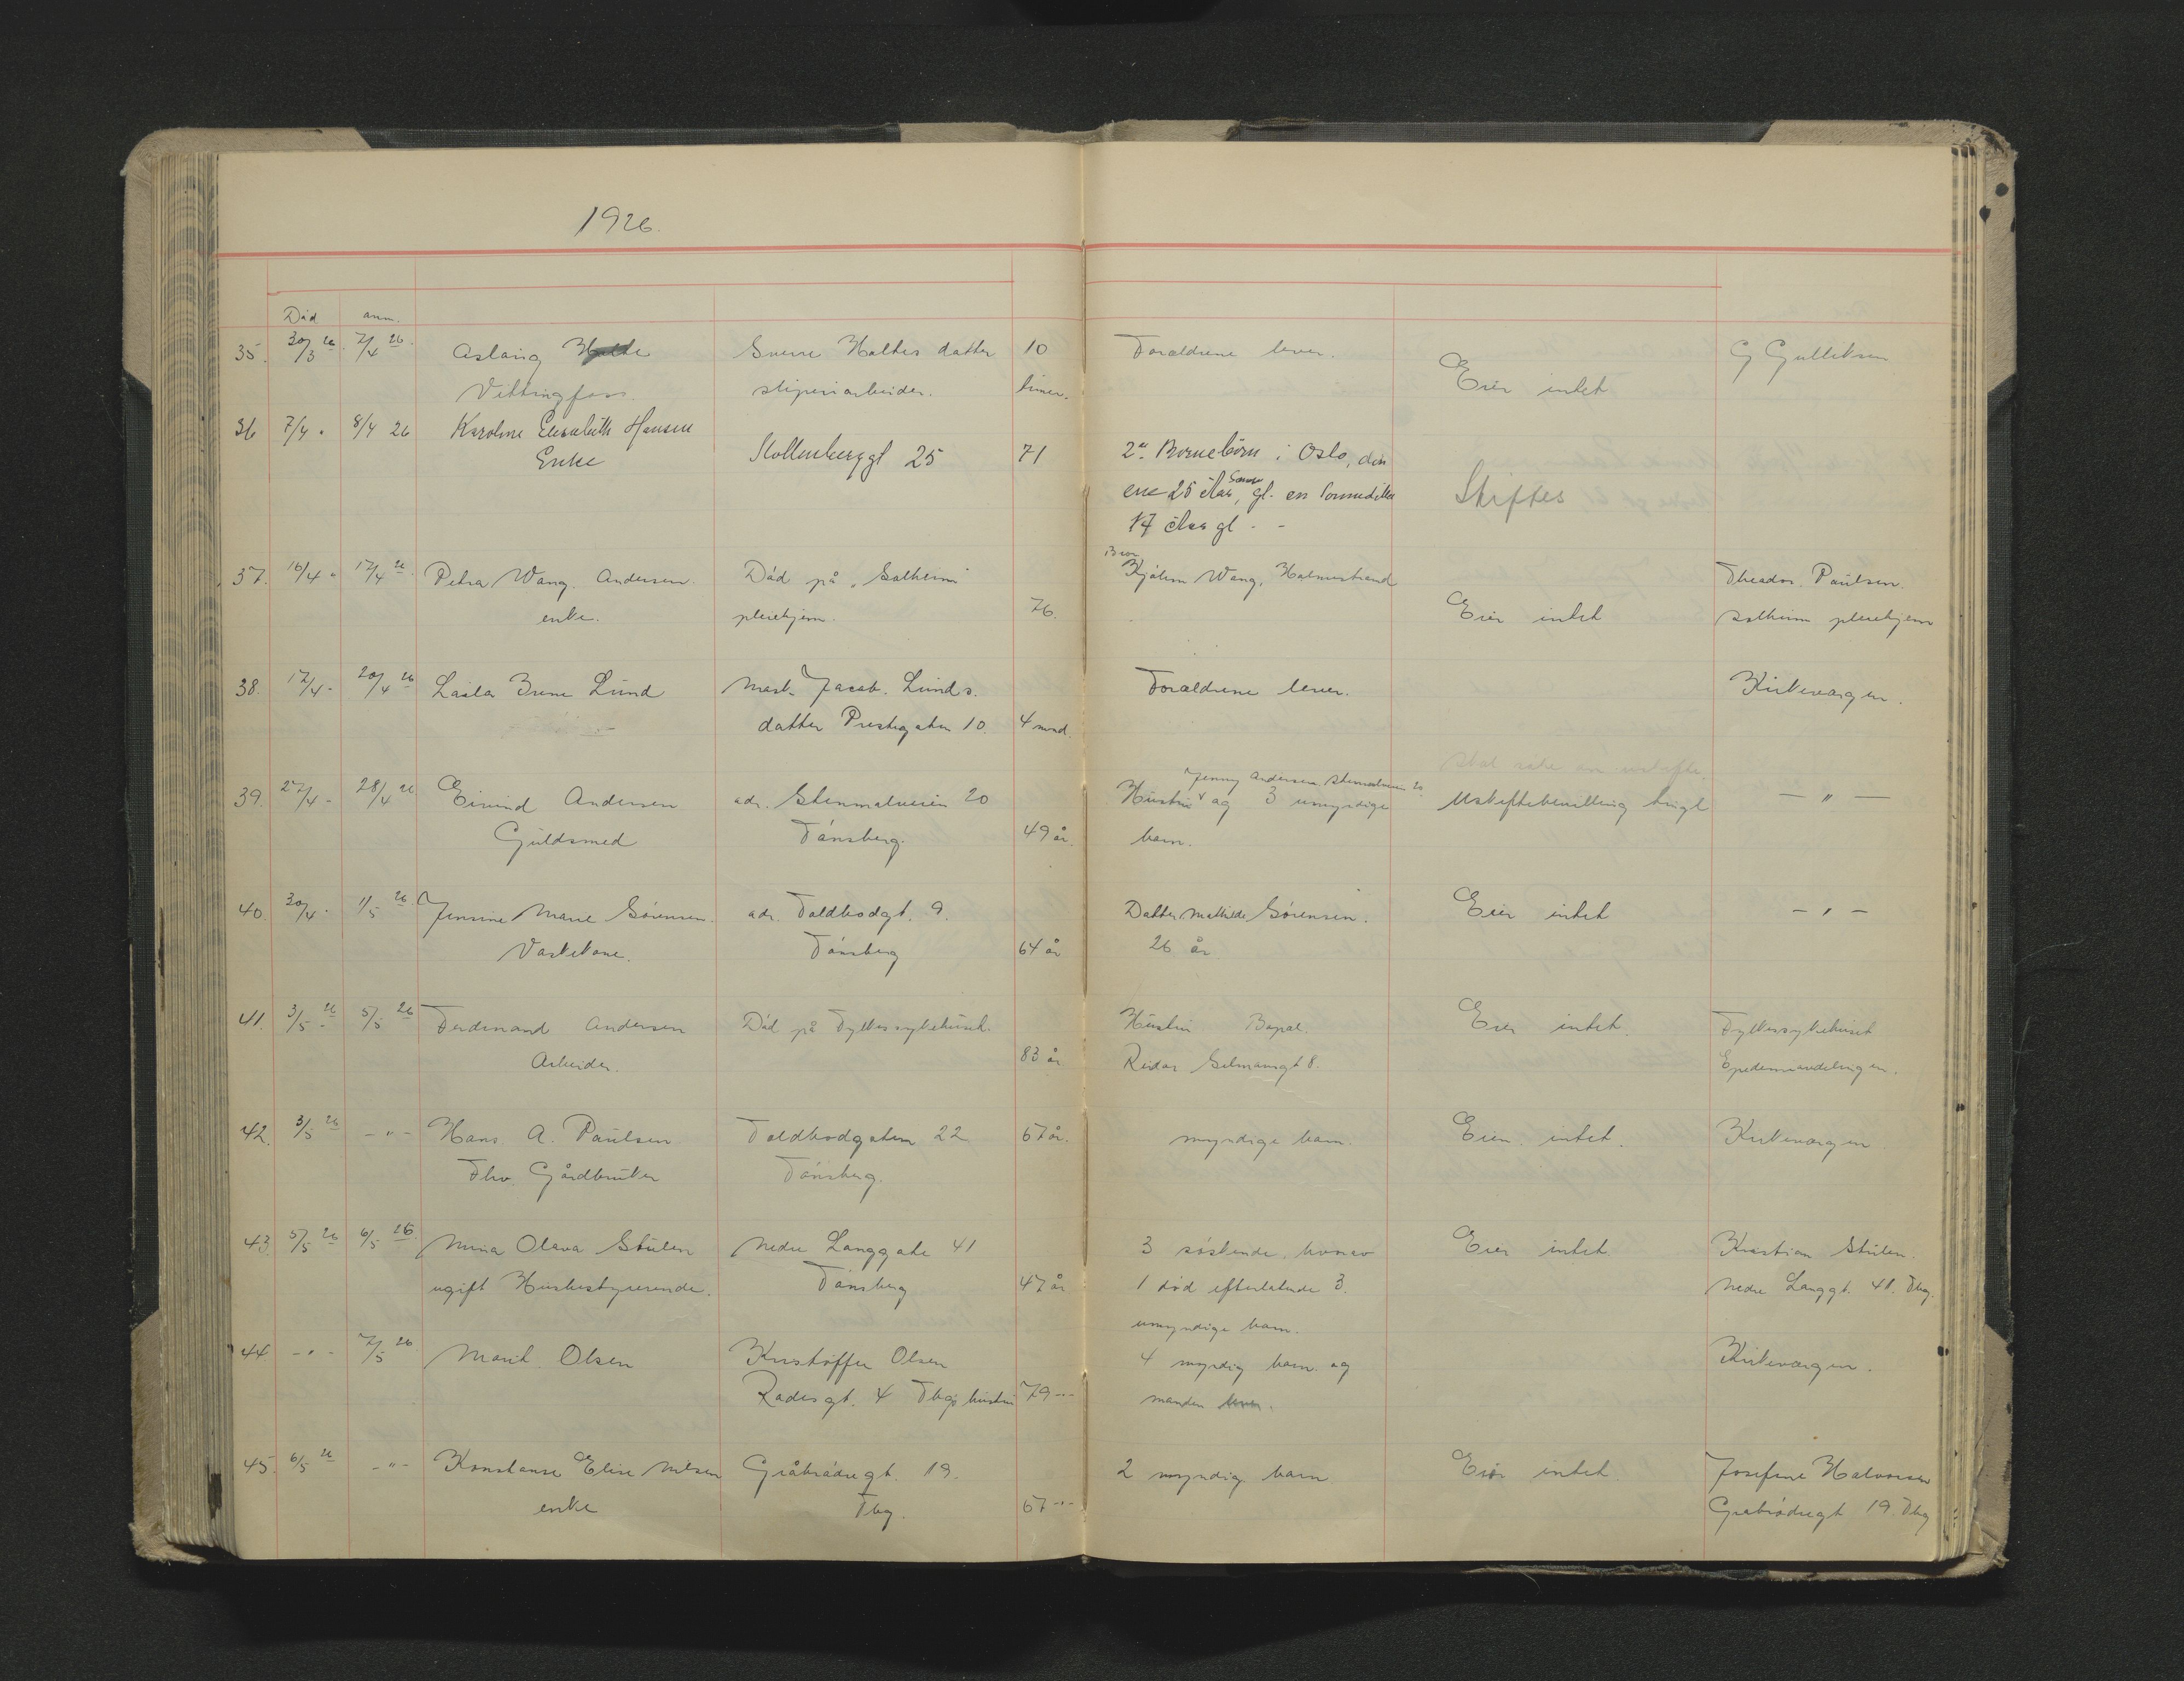 1926.
Død anm.
35. 30/3 26. 7/4 26. Aslaug Holte Sverre Holtes datter 10 Forældrene lever. G Gulliksen
Vittingfoss. sliperiarbeider. timer. Eier intet
36 7/4 . 8/4 26 Karoline Elisabeth Hansen
Enke Møllenberggt 25 71 2 Børnebörn i Oslo, den
ene 25 Aar, gl. en
17 Aar gl. - Skiftes
37. 16/4 . 17/4 26 Petra Wang Andersen Død på "Solheim" Bror
Kjølem Wang, Holmestrand Theodor Paulsen
enke. pleiehjem. 76. Eier intet Solheim pleiehjem
38. 17/4 - 20/4 26 Laila Brene Lund Mask. Jacob. Lunds. Forældrene lever. Kirkevergen.
datter Prestegaten 10. 4 mnd.
skal søke om uskifte.
Jenny Andersen Stenmalveien 20
39. 27/4 - 28/4 26 Eivind Andersen adr. Stenmalveien 20 Hustru og 3 umyndige Uskiftebevilling tingl — " —
Guldsmed Tønsberg. 49 år. barn.
40. 30/4 . 1/5 26 Jensine Marie Sørensen. adr. Toldbodgt. 9. Datter Mathilde Sørensen. Eier intet - " -
Vaskekone. Tønsberg 64 år 26 år
41. 3/5 26 5/5 26 Ferdinand Andersen Død på Fylkessykehuset. Hustru Eier intet. Fylkessykehuset
Arbeider. 83 år Reidar Selmansgt 8. Epidemiavdelingen.
42. 3/5 26 - " - Hans A. Paulsen Toldbodgaten 22 67 år. myndige barn. Eier intet. Kirkevergen
Fhv. Gårdbruker Tønsberg.
43. 5/5 26 6/5 26 Mina Olava Stulen Nedre Langgate 41 3 søskende, hvorav Eier intet Kristian Stulen.
ugift Husbestyrerinde. Tønsberg 47 år 1 død efterlatende 3. Nedre Langgt. 41. Tbg.
umyndige barn.
44. - " - 7/5 26 Marit Olsen Kristoffer Olsen 4 myndig barn og Kirkevergen.
Rådesgt. 4 Tbgs hustru 79 -"- manden lever.
45. 6/5 26 - " - Konstanse Elise Nilsen Gråbrødregt. 19. 2 myndig barn Eier intet Josefine Halvorsen
enke Tbg. 67 -"- Gråbrødregt 19 Tbg